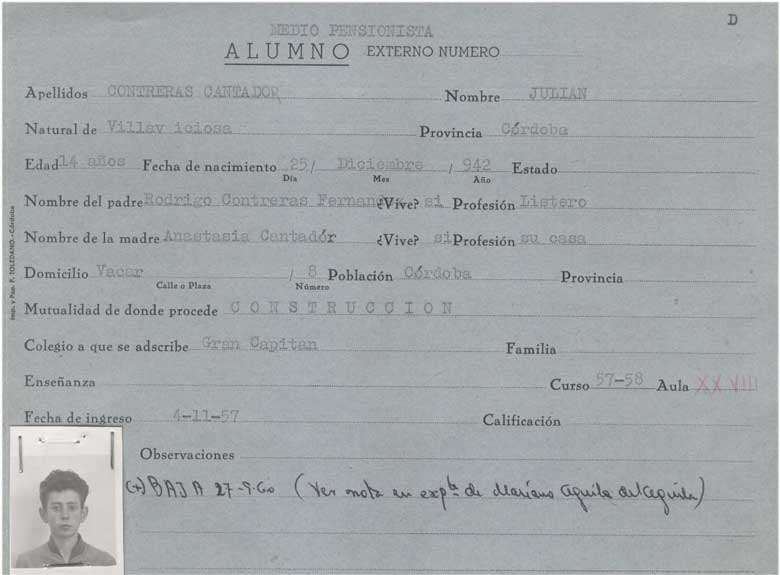 D
MEDIO PENSIONISTA
ALUMNO EXTERNO NUMERO
Apellidos CONTRERAS CANTADOR Nombre JULIAN
Natural de Villav iciosa Provincia Córdoba
Edad 14 años Fecha de nacimiento 25 / Diciembre / 942 Estado
Día Mes Año
Nombre del padre Rodrigo Contreras Fernandez ¿Vive? si Profesión Listero
Nombre de la madre Anastasia Cantadór ¿Vive? si Profesión su casa
Domicilio Vacar / 8 Población Córdoba Provincia
Calle o Plaza Número
Mutualidad de donde procede CONSTRUCCION
Colegio a que se adscribe Gran Capitan Familia
Enseñanza Curso 57-58 Aula XXVIII
Fecha de ingreso 4-11-57 Calificación
Observaciones
(+) BAJA 27-9-60 (Ver nota en expte de Mariano Aguila del Aguila)
Imp. y Pap. F. TOLEDANO.-Córdoba